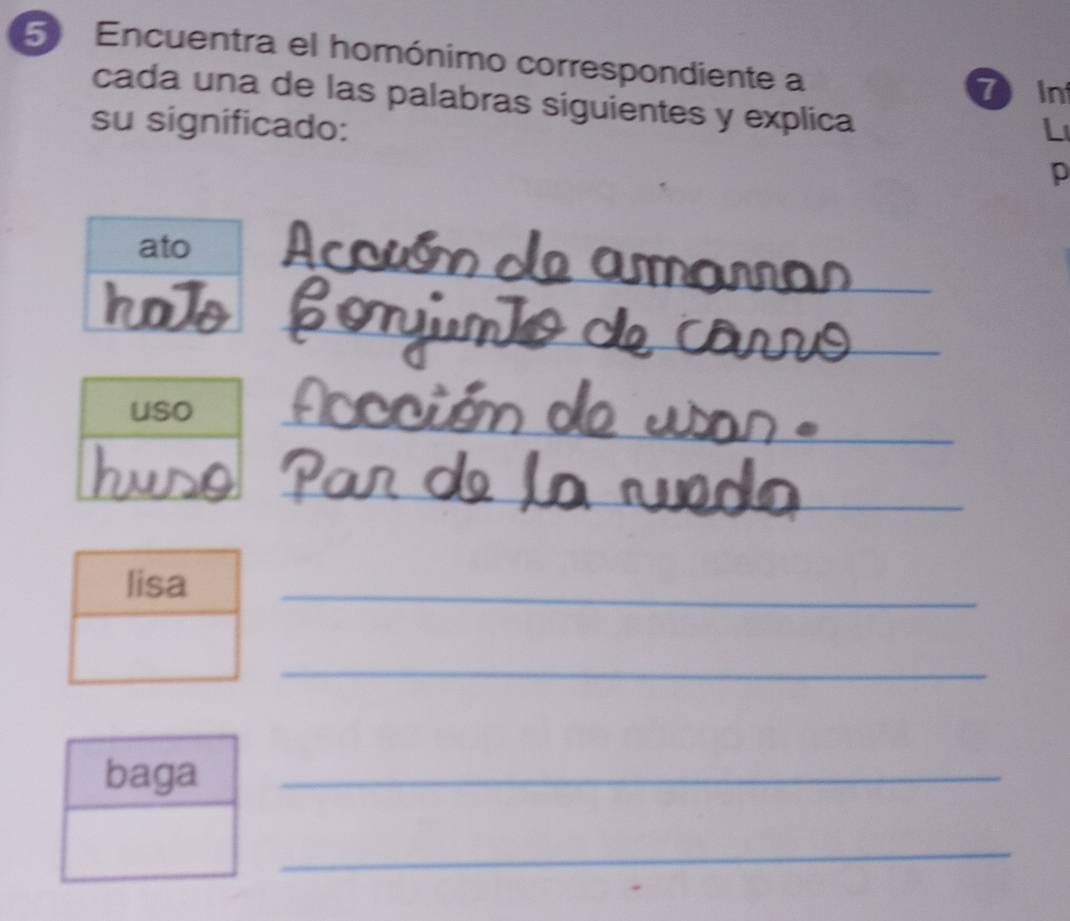 5 Encuentra el homónimo correspondiente a
cada una de las palabras siguientes y explica
su significado:
ato Acción de amarrar
hato Conjunto de carro
uso Accción de usar.
huso Par de la rueda
lisa
baga
7